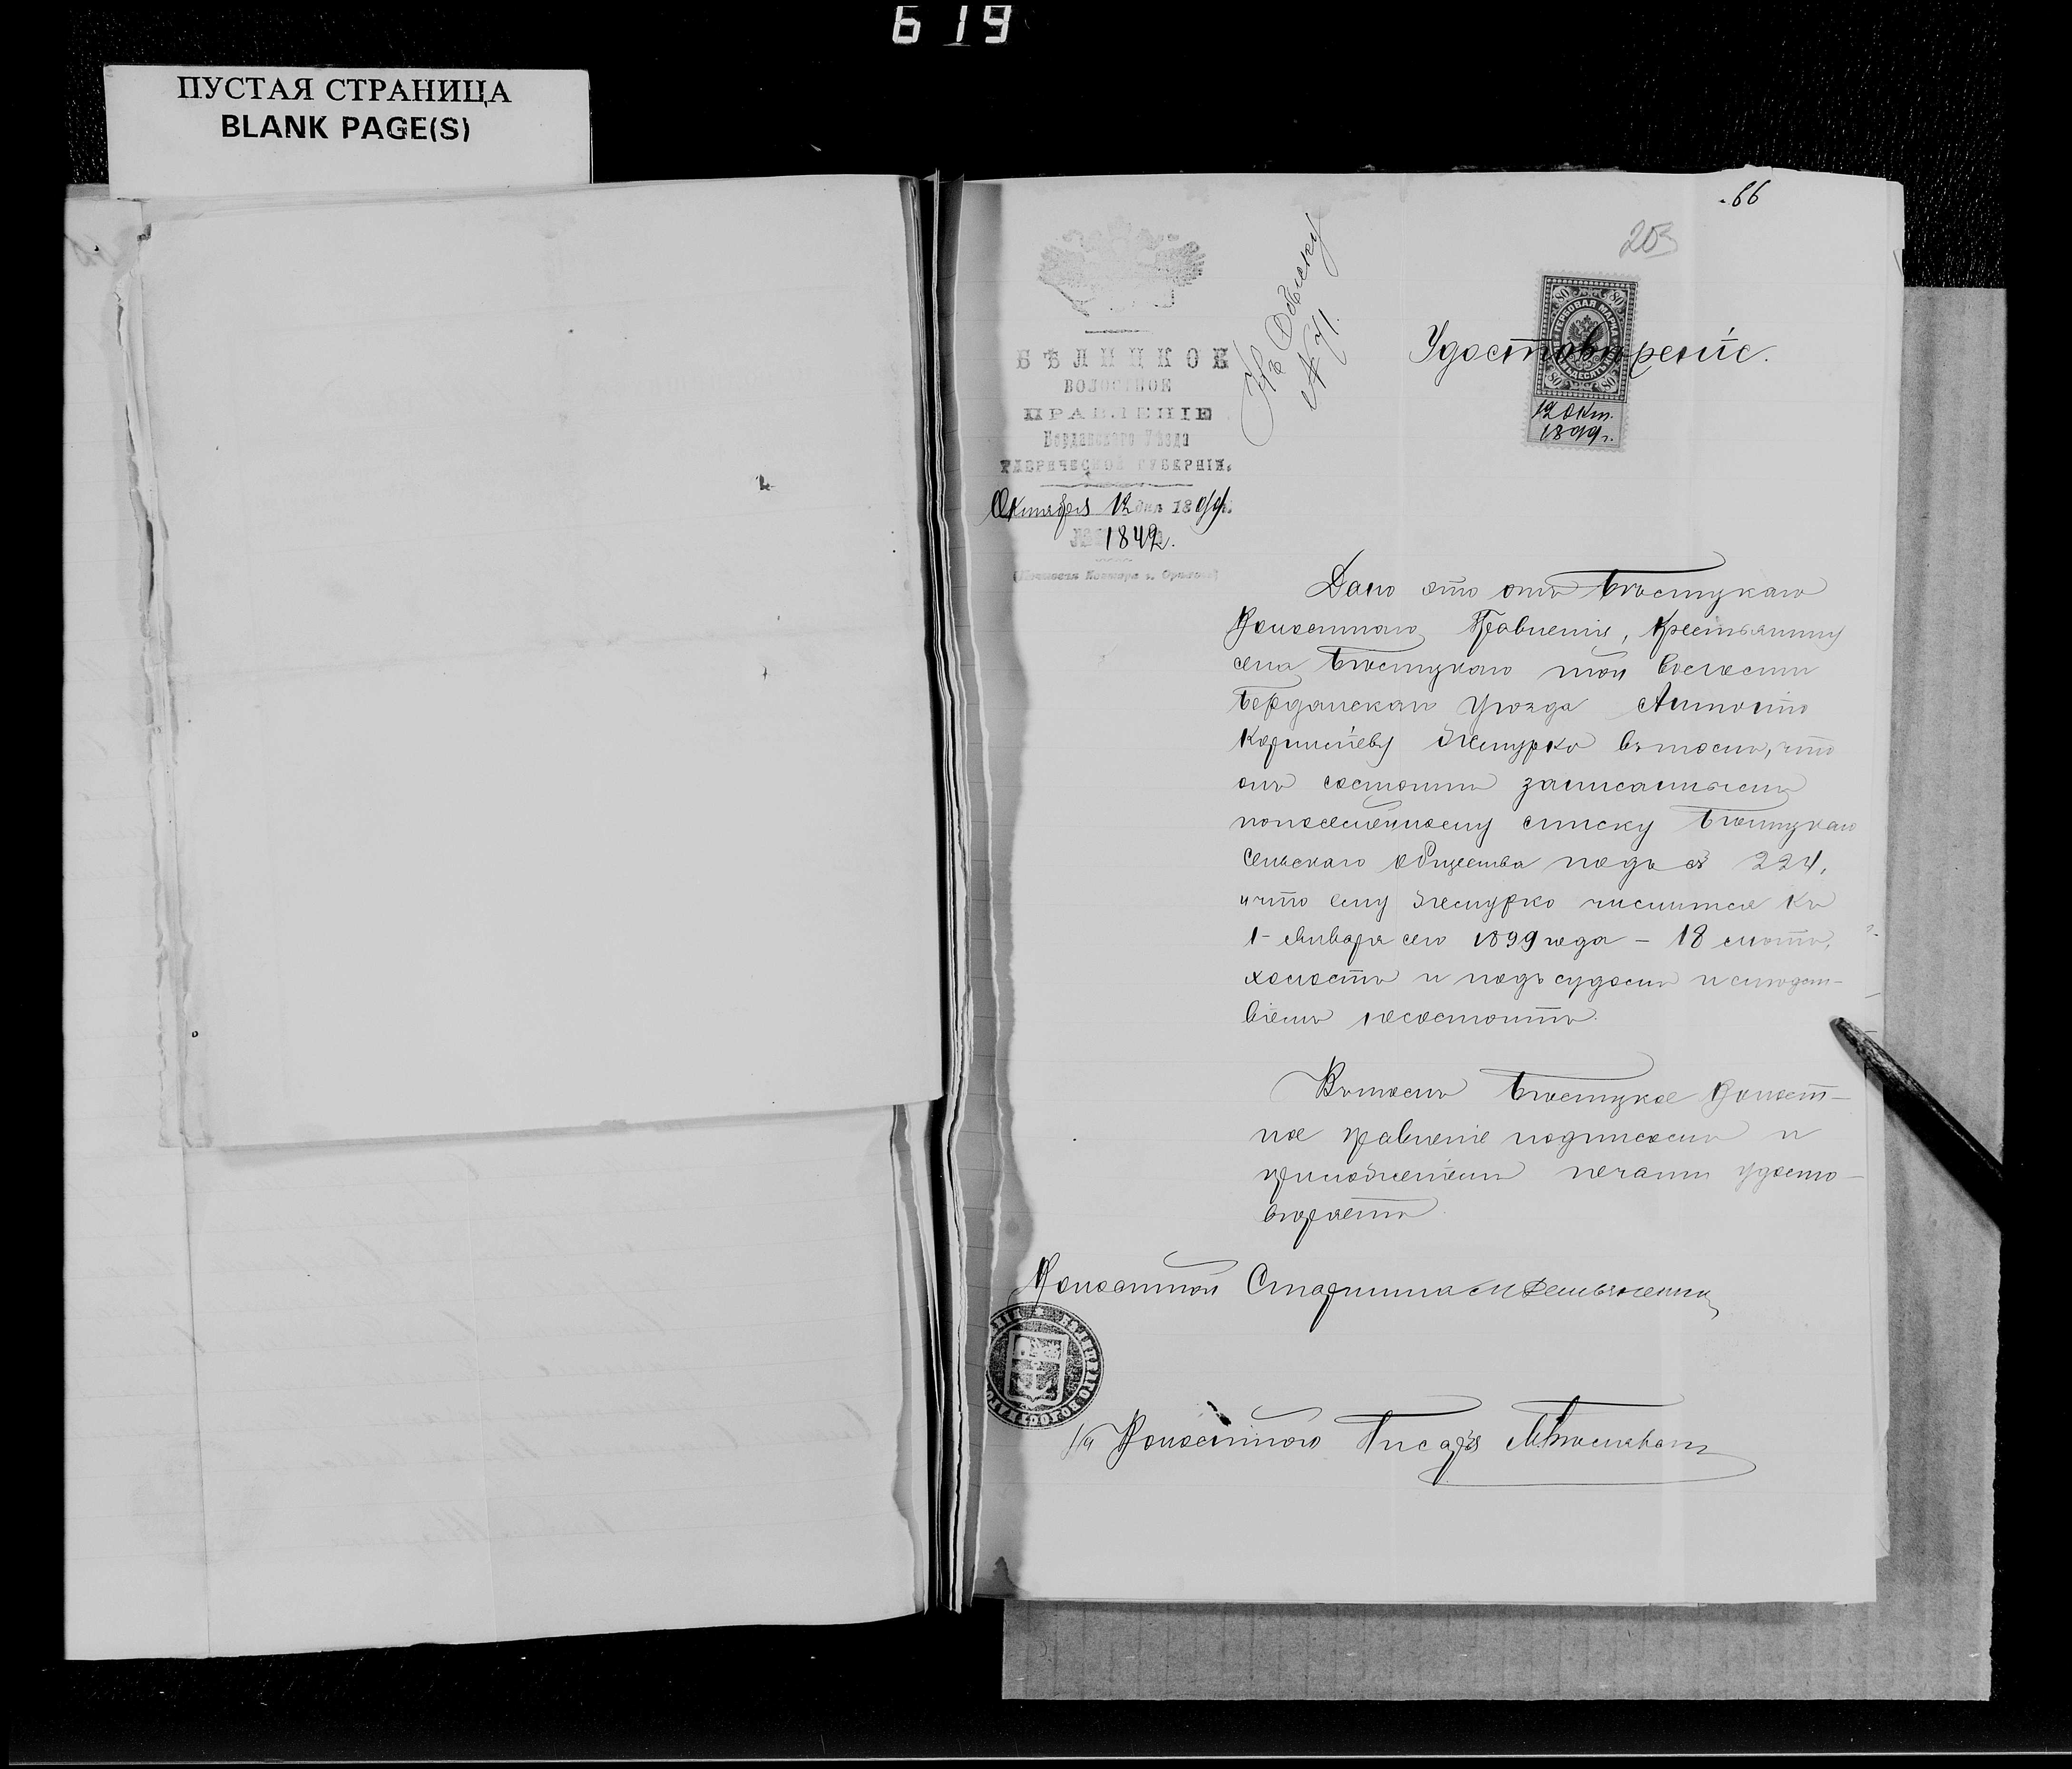 619
ПУСТАЯ СТРАНИЦА
BLANK PAGE(S)
66
203
Къ Обыску
№ 71.
БѢЛИЦКОЕ
ВОЛОСТНОЕ
ПРАВЛЕНІЕ
Бердянскаго Уѣзда
ТАВРИЧЕСКОЙ ГУБЕРНІИ.
Октября 12 дня 1899 г.
№ 1842.
ГЕРБОВАЯ МАРКА
80 80
80 80
12 Окт.
1899 г.
Удостовѣреніе.
Дано это отъ Бѣлицкаго
Волостного Правленія, Крестьянину
села Бѣлицкаго той волости
Бердянскаго Уѣзда Антонію
Корнилiеву въ томъ, что
онъ состоитъ записаннымъ
по посемейному списку Бѣлицкаго
сельскаго общества подъ № 224,
и что ему числится къ
1 января сего 1899 года – 18 лѣтъ,
холостъ и подъ судомъ и слѣдст-
віемъ несостоитъ.
Въ томъ Бѣлицкое Волост-
ное правленіе подписомъ и
приложеніемъ печати удосто-
вѣряетъ.
Волостной Старшина
За Волостного Писаря